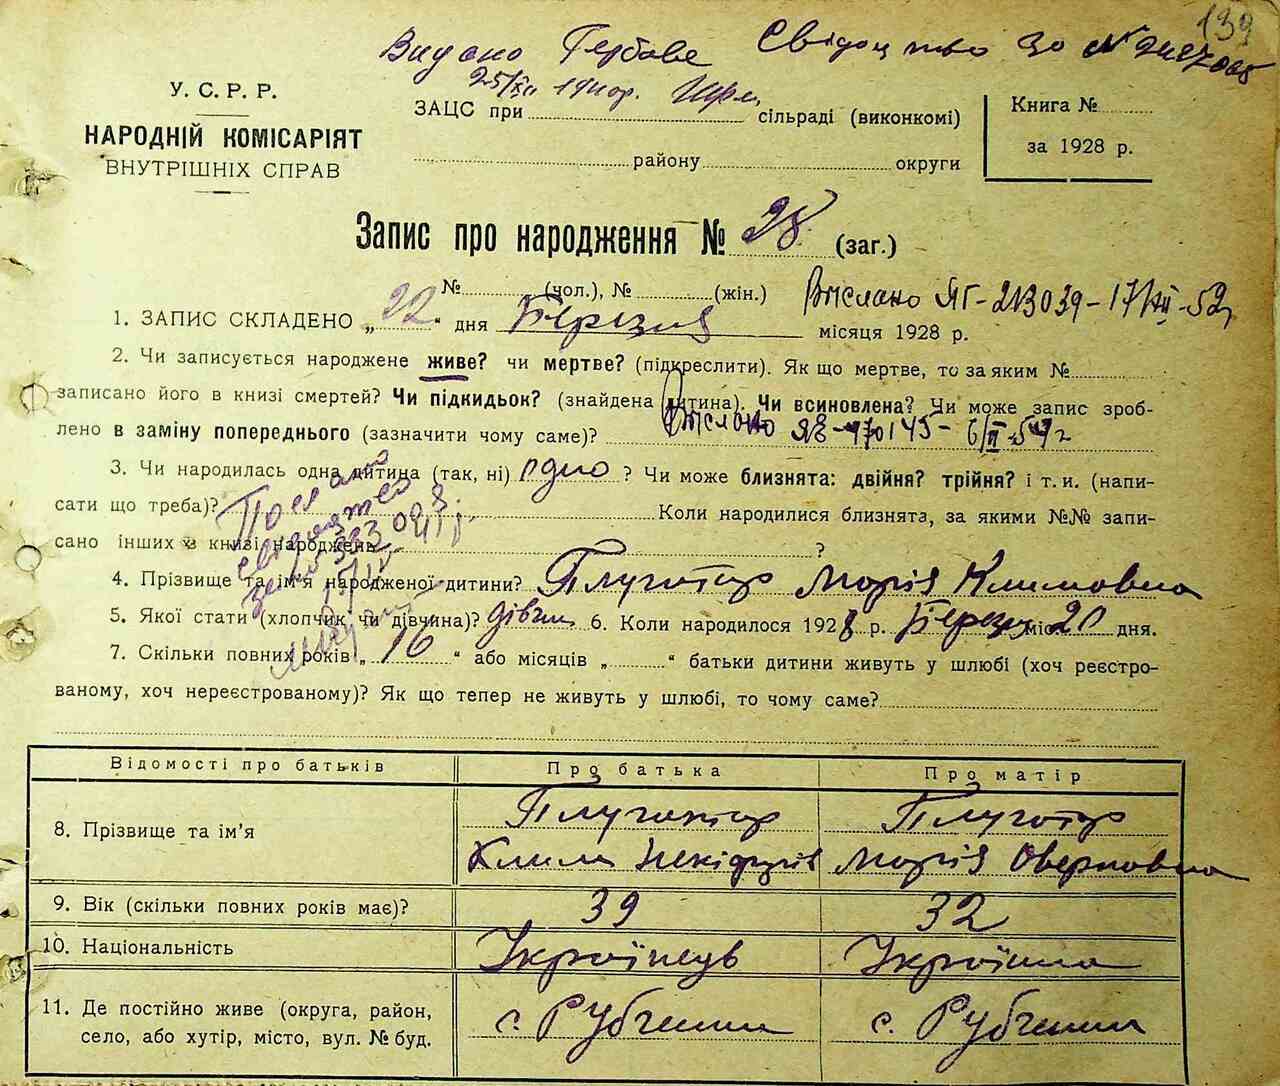 139
Видано Гербове Свідоцтво за №
25/XII
У. С. Р. Р.
НАРОДНІЙ КОМІСАРІЯТ
ВНУТРІШНІХ СПРАВ
ЗАЦС при сільраді (виконкомі)
району округи
Книга №
за 1928 р.
Запис про народження № 28 (заг.)
№ (чол.), № (жін.)
Вислано ЯГ-213039-17/XII-52
1. ЗАПИС СКЛАДЕНО „22“ дня Березня місяця 1928 р.
2. Чи записується народжене живе? чи мертве? (підкреслити). Як що мертве, то за яким №
записано його в книзі смертей? Чи підкидьок? (знайдена дитина). Чи всиновлена? Чи може запис зроб-
лено в заміну попереднього (зазначити чому саме)? Вислано
3. Чи народилась одна дитина (так, ні) одно? Чи може близнята: двійня? трійня? і т. и. (напи-
сати що треба)? Коли народилися близнята, за якими №№ запи-
сано інших в книзі народжень ?
4. Прізвище та ім'я народженої дитини? Плугатир Марія Климовна
5. Якої стати (хлопчик чи дівчина)? дівчин. 6. Коли народилося 1928 р. Березня міс. 20 дня.
7. Скільки повних років „16“ або місяців „ “ батьки дитини живуть у шлюбі (хоч реєстро-
ваному, хоч нереєстрованому)? Як що тепер не живуть у шлюбі, то чому саме?
Відомості про батьків Про батька Про матір
8. Прізвище та ім'я Плугатир Плугатир
Клим Марія
9. Вік (скільки повних років має)? 39 32
10. Національність Українець Українка
11. Де постійно живе (округа, район, с. Рубченки с. Рубченки
село, або хутір, місто, вул. № буд.